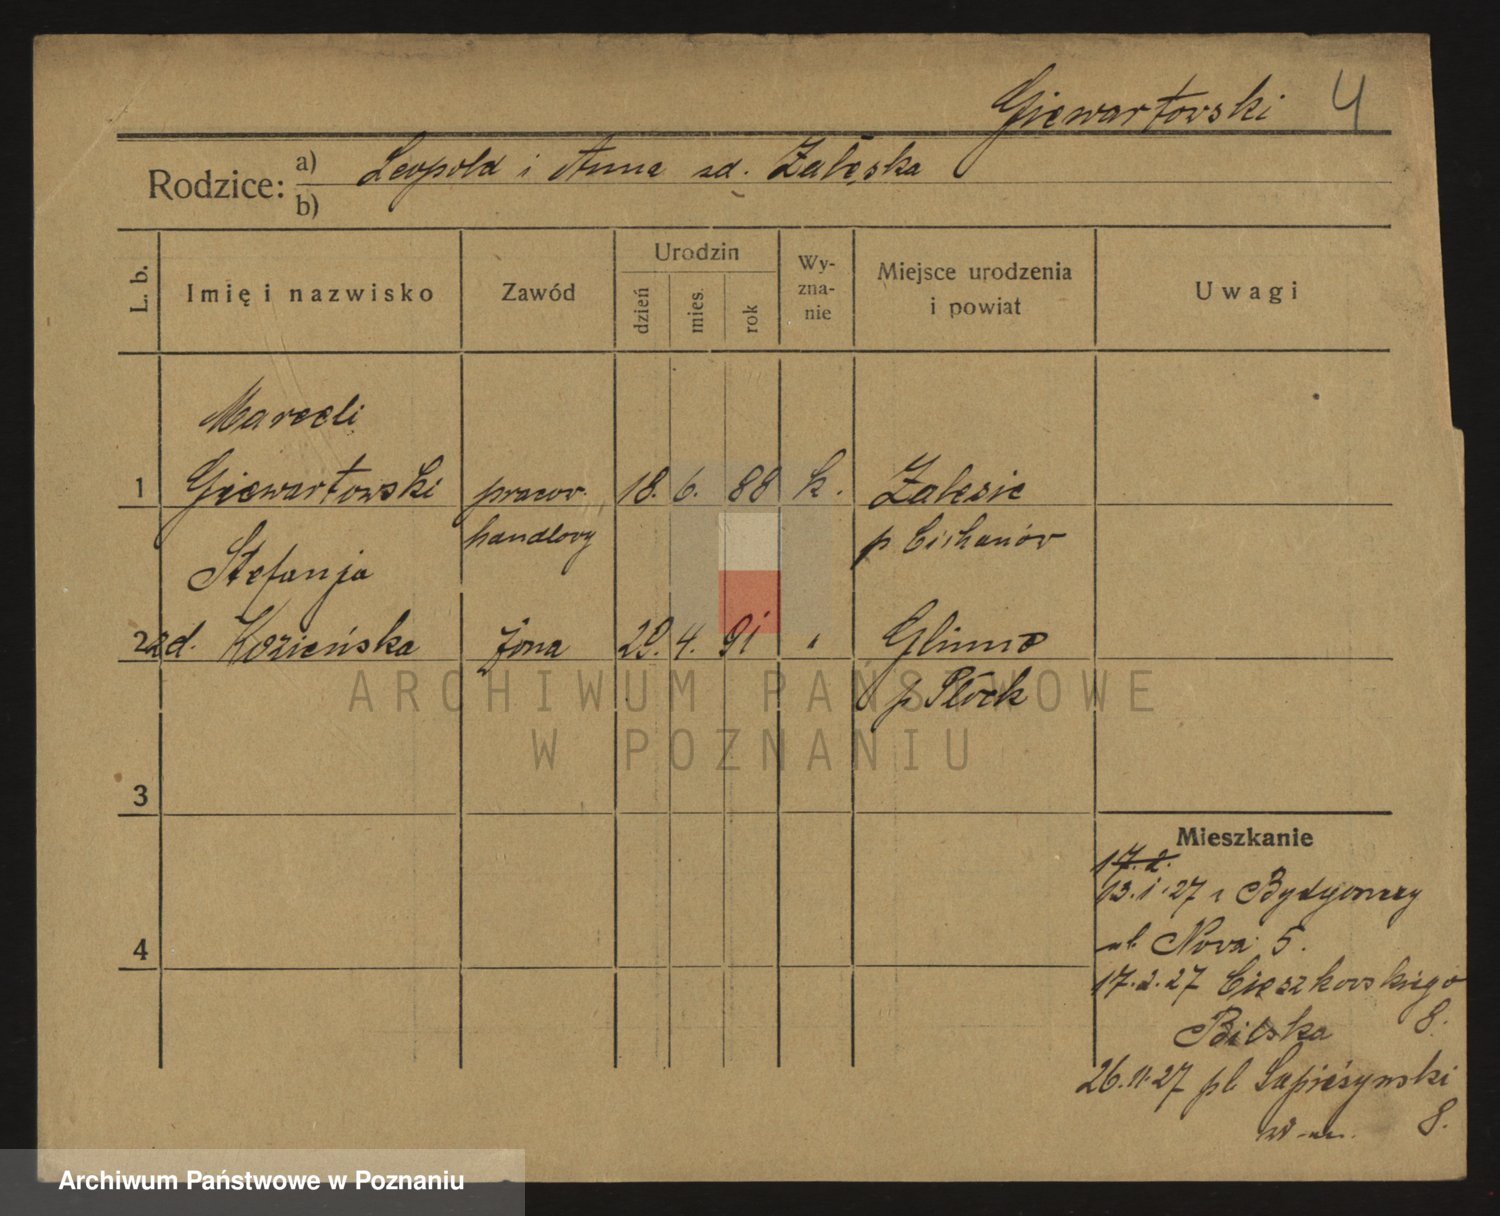 Giewartowski 4
Rodzice: a) Leopold i Anna zd. Zaleska
b)
L. b. Imię i nazwisko Zawód Urodzin dzień mies. rok Wy-zna-nie Miejsce urodzenia i powiat Uwagi
Marceli
1 Giewartowski pracow. 18. 6. 88 k. Zalesie
handlowy p. Cichanów
Stefanja
2 zd. Kozieńska żona 29. 4. 91 " Glinno
p. Płock
3
Mieszkanie
17.2.
13.1.27 z Bydgoszczy
4 ul. Nowa 5.
17.2.27 Cieszkowskiego
8.
Bilska
26.11.27 pl. Sapieżynski
8.
ARCHIWUM PAŃSTWOWE
W POZNANIU
Archiwum Państwowe w Poznaniu